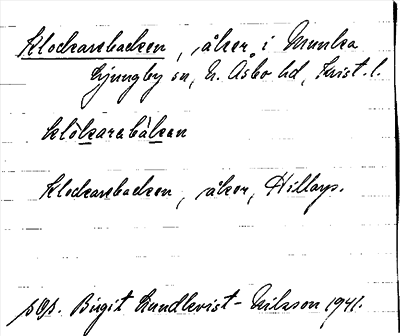 Klockarebacken, åker i Munka
Ljungby sn, N. Åsbo hd, Krist. l.
klòkarebàkan
Klockarebacken, åker, Hillarp.
Birgit Lundkvist-Nilsson 1941.